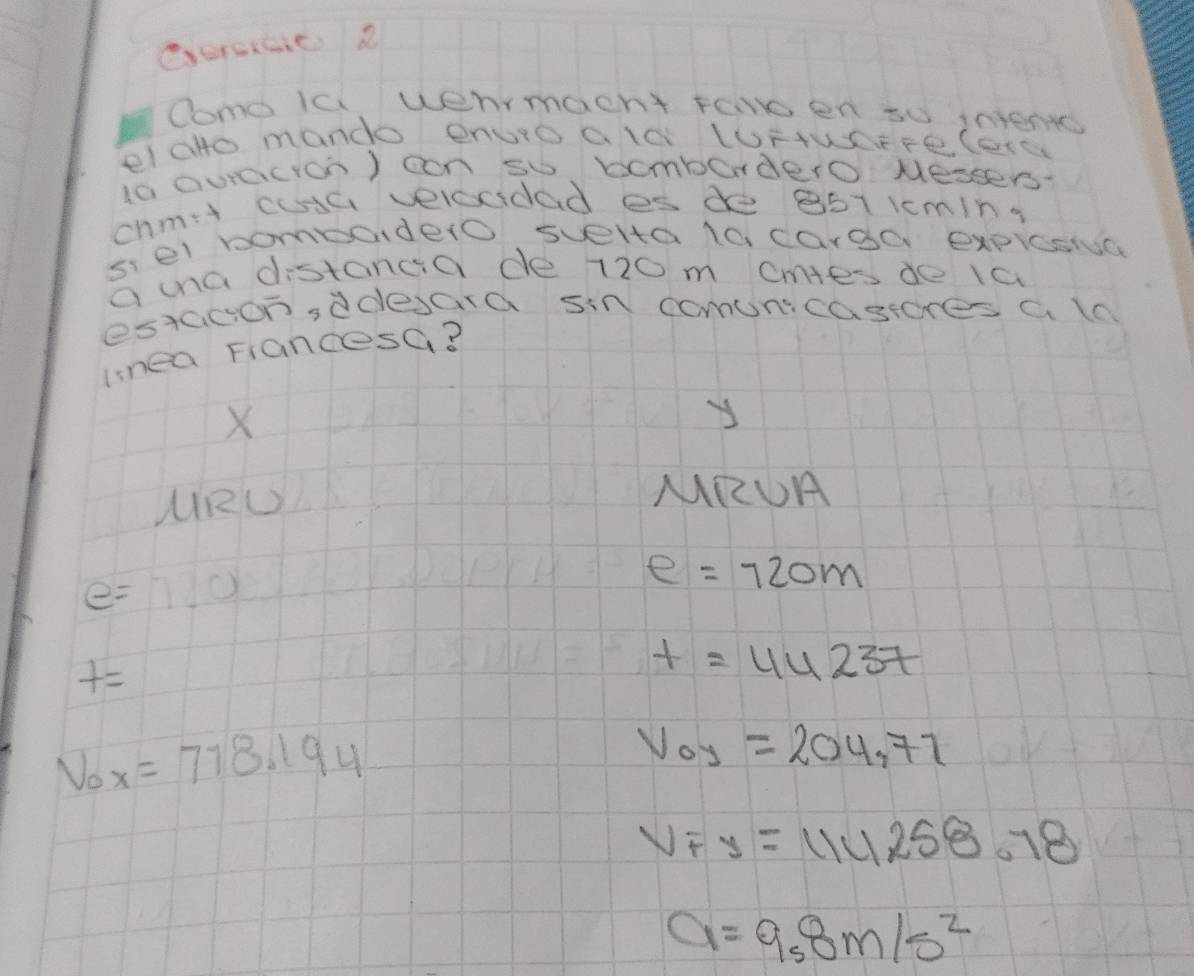 Exercicio 2
Como la wehrmacht fallo en su intento
el alto mando envio a la luftwaffe (era
la aviación) con su bombardero Messers-
chmitt cuya velocidad es de 857 km/h,
si el bombardero suelta la carga explosiva
a una distancia de 720 m antes de la
estación, ¿dejara sin comunicasiones a la
linea Francesa?
X y
MRU MRUA
e= e = 720m
t= t = 44237
Vox = 718.194 Voy = 204,77
VFy = 44258.78
a = 9,8m/s²